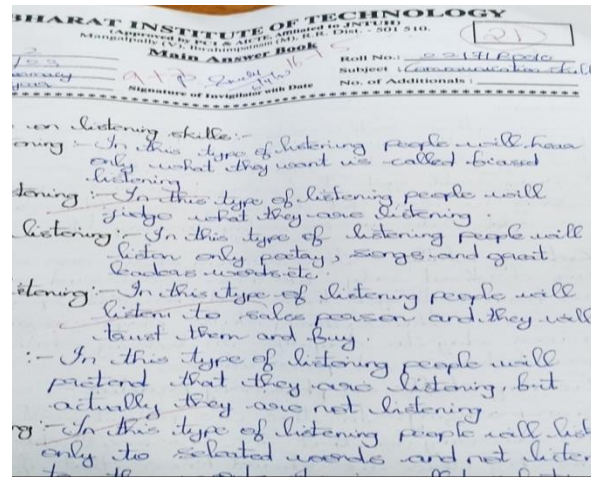 BHARAT INSTITUTE OF TECHNOLOGY
(Approved by PCI & AICTE, Affiliated to JNTUH)
Mangalpally (V), Ibrahimpatnam (M), R.R. Dist. - 501 510.
Main Answer Book
21
Roll No.:
Subject : Communication skill
No. of Additionals :
Signature of Invigilator with Date
on listening skills:-
ening :- In this type of listening people will hear
only what they want is called biased
listening
stening :- In this type of listening people will
judge what they are listening.
listening:- In this type of listening people will
listen only poetry, songs and great
leaders words etc.
stening:- In this type of listening people will
listen to sales person and they will
trust them and buy.
:- In this type of listening people will
pretend that they are listening, but
actually they are not listening
ng :- In this type of listening people will list
only to selected words and not listen